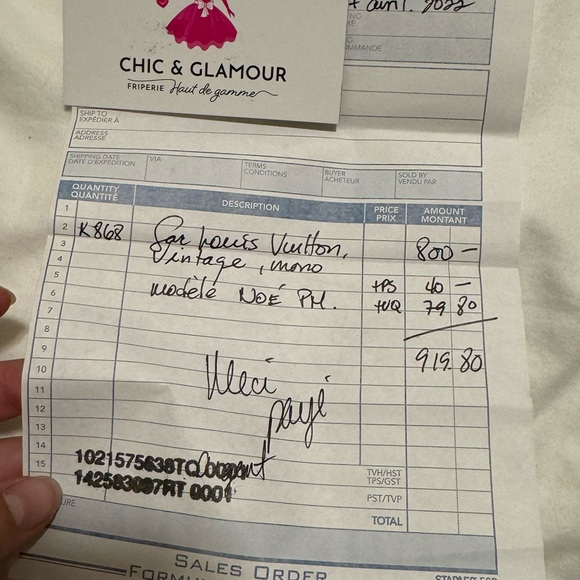 avril. 2022
NO
COMMANDE
CHIC & GLAMOUR
FRIPERIE Haut de gamme
SHIP TO
EXPÉDIER À
ADDRESS
ADRESSE
SHIPPING DATE
DATE D'EXPÉDITION
VIA
TERMS
CONDITIONS
BUYER
ACHETEUR
SOLD BY
VENDU PAR
QUANTITY
QUANTITÉ
DESCRIPTION
PRICE
PRIX
AMOUNT
MONTANT
1
2 K868 Sac Louis Vuitton, 800 —
3
4 Vintage, mono
5 TPS 40 —
6 modèle NOÉ PM. TVQ 79 80
7
8
9 919.80
10
11 Merci
12 payé
13
14
15 argent
1021575638TQ 0001
142583087RT 0001
TVH/HST
TPS/GST
PST/TVP
TOTAL
URE
SALES ORDER